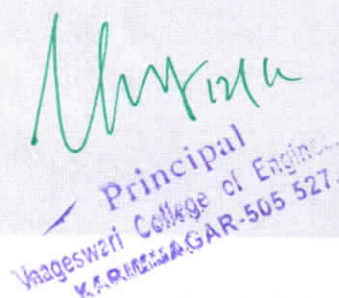 Principal
Vaageswari College of Engin
KARIMNAGAR-505 527.